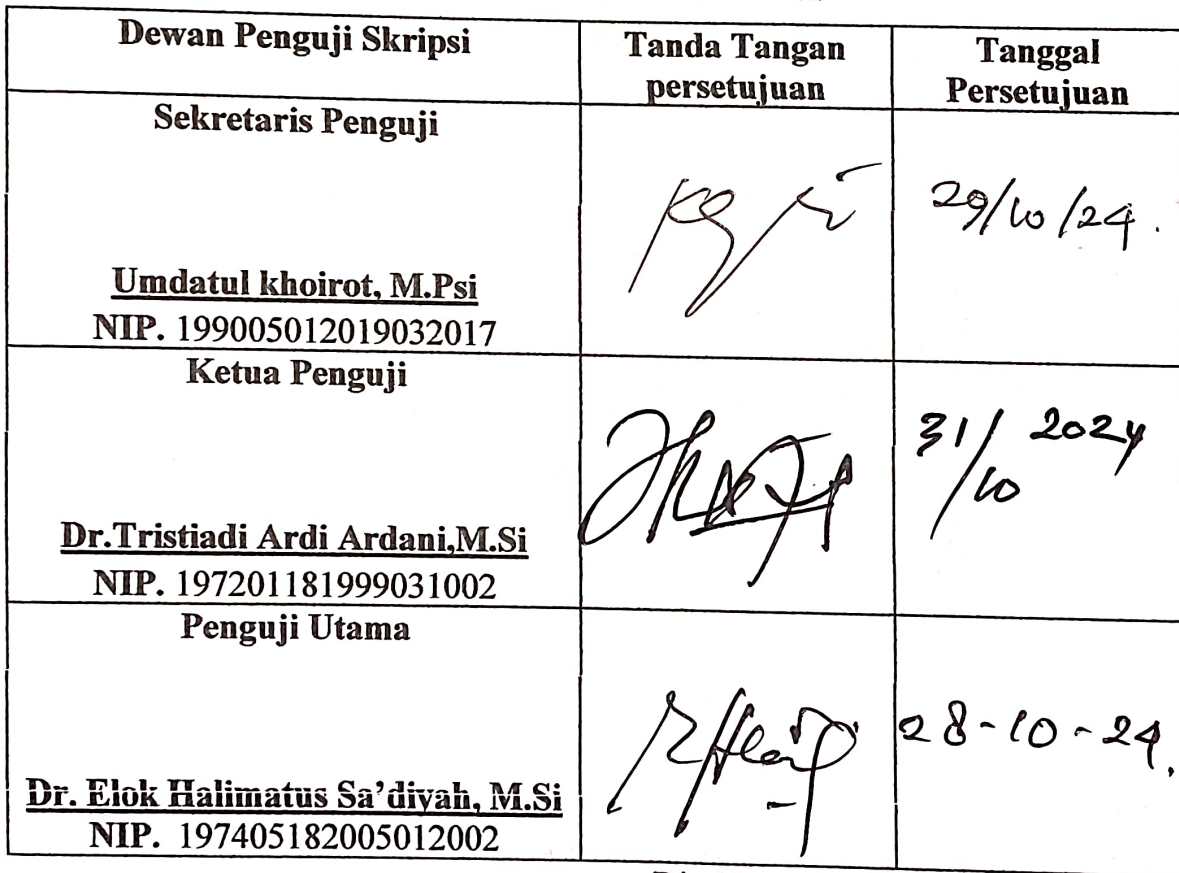 Dewan Penguji Skripsi
Tanda Tangan
persetujuan
Tanggal
Persetujuan
Sekretaris Penguji
Umdatul khoirot, M.Psi
NIP. 199005012019032017
29/10/24.
Ketua Penguji
Dr.Tristiadi Ardi Ardani,M.Si
NIP. 197201181999031002
31/10 2024
Penguji Utama
Dr. Elok Halimatus Sa'diyah, M.Si
NIP. 197405182005012002
28-10-24.